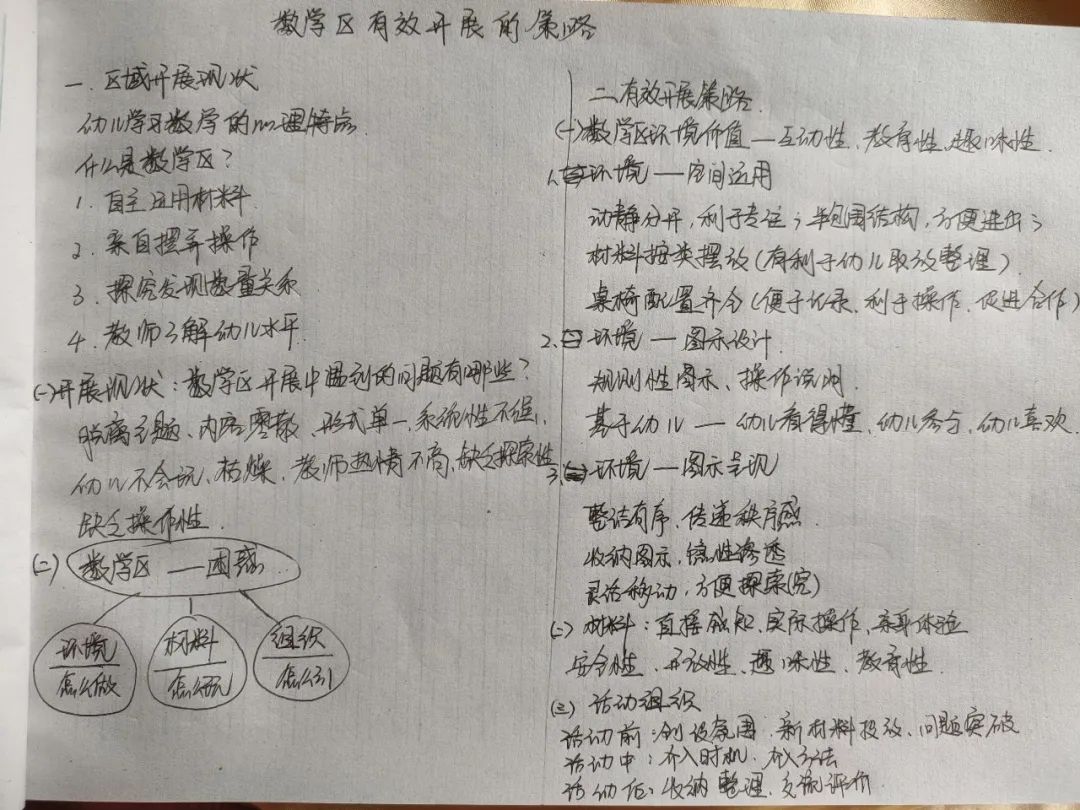 数学区有效开展的策略
一、区域开展现状
幼儿学习数学的心理特点
什么是数学区?
1. 自主运用材料
2. 亲自摆弄操作
3. 探究发现数量关系
4. 教师了解幼儿水平
(一)开展现状:数学区开展中遇到的问题有哪些?
脱离主题、内容零散、形式单一、系统性不强、
幼儿不会玩、枯燥、教师热情不高、缺乏探索性
缺乏操作性
(二) 数学区——困惑
环境 怎么做
材料 怎么玩
组织 怎么引
二、有效开展策略
(一)数学区环境价值—互动性、教育性、趣味性
1. 环境—空间运用
动静分开,利于专注;半包围结构,方便进出;
材料按类摆放(有利于幼儿取放整理)
桌椅配置齐全(便于记录、利于操作、促进合作)
2. 环境—图示设计
规则性图示、操作说明
基于幼儿—幼儿看得懂、幼儿参与、幼儿喜欢
3. 环境—图示呈现
整洁有序、传递秩序感
收纳图示、隐性渗透
灵活移动、方便探索(究)
(二)材料:直接感知、实际操作、亲身体验
安全性、开放性、趣味性、教育性
(三)活动组织
活动前:创设氛围、新材料投放、问题突破
活动中:介入时机、介入方法
活动后:收纳整理、交流评价